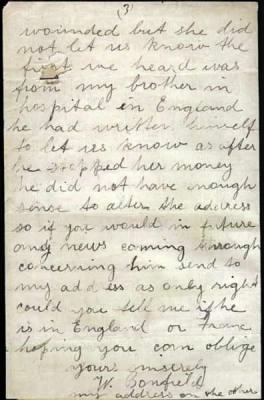 (3)
wounded but she did
not let us know the
first we heard was
from my brother in
hospital in England
he had written himself
to let us know as after
he stopped her money
she did not have enough
sense to alter the address
so if you would in future
any news coming through
concerning him send to
my address as only right
could you tell me if he
is in England or France
hoping you can oblige
yours sincerely
W.
my address on the other